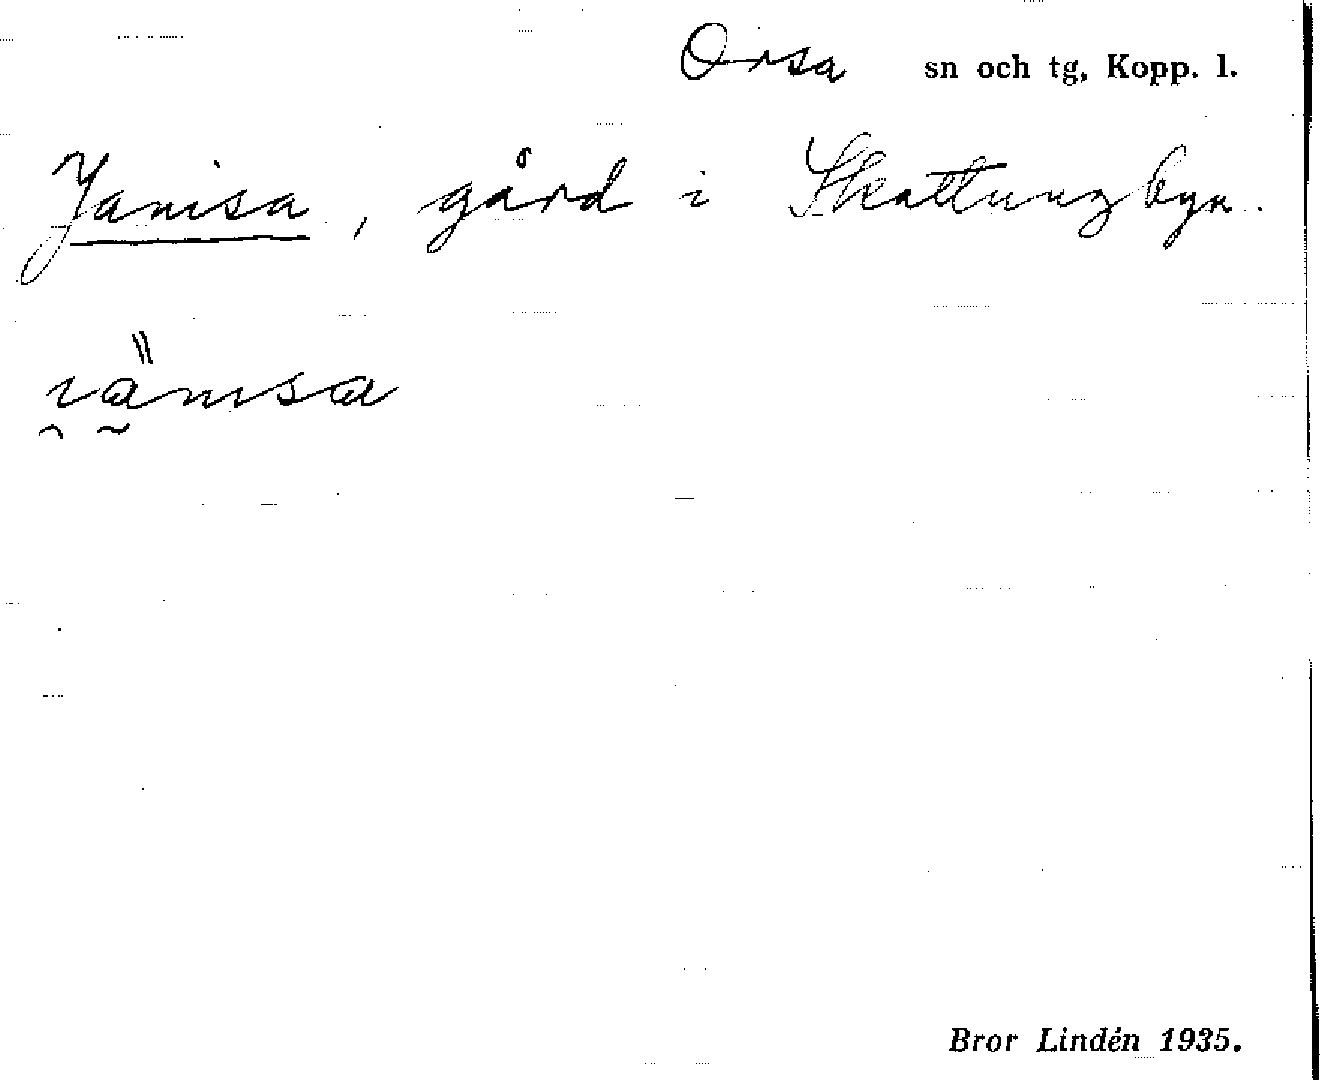 Orsa sn och tg, Kopp. l.
Janisa, gård i Skattungbyn.
Bror Lindén 1935.